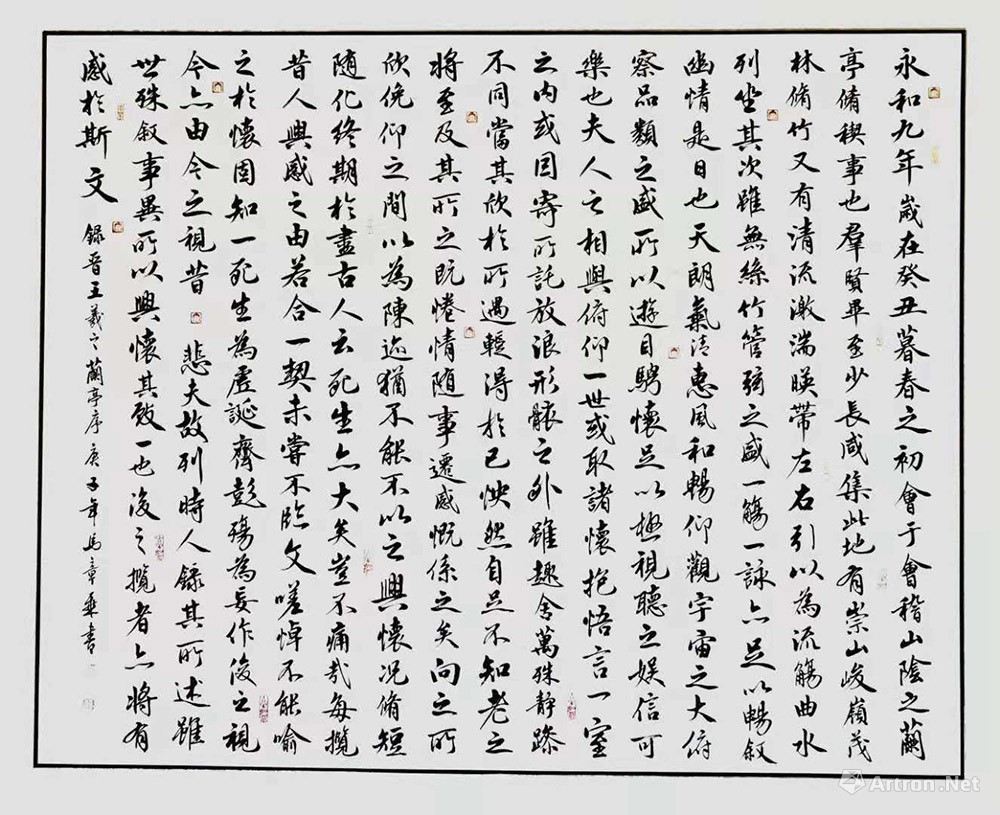 永和九年歲在癸丑暮春之初會于會稽山陰之蘭
亭脩稧事也羣賢畢至少長咸集此地有崇山峻領茂
林脩竹又有清流激湍暎帶左右引以為流觴曲水
列坐其次雖無絲竹管弦之盛一觴一詠亦足以暢叙
幽情是日也天朗氣清惠風和暢仰觀宇宙之大俯
察品類之盛所以遊目騁懷足以極視聽之娛信可
樂也夫人之相與俯仰一世或取諸懷抱悟言一室
之內或因寄所託放浪形骸之外雖趣舍萬殊靜躁
不同當其欣於所遇輕得於己怏然自足不知老之
將至及其所之既惓情隨事遷感慨係之矣向之所
欣俛仰之閒以為陳迹猶不能不以之興懷况脩短
隨化終期於盡古人云死生亦大矣豈不痛哉每攬
昔人興感之由若合一契未嘗不臨文嗟悼不能喻
之於懷固知一死生為虛誕齊彭殤為妄作後之視
今亦由今之視昔悲夫故列時人録其所述雖
世殊叙事異所以興懷其致一也後之攬者亦將有
感於斯文
録晋王羲之蘭亭序庚子年馬章乘書
Artron.Net